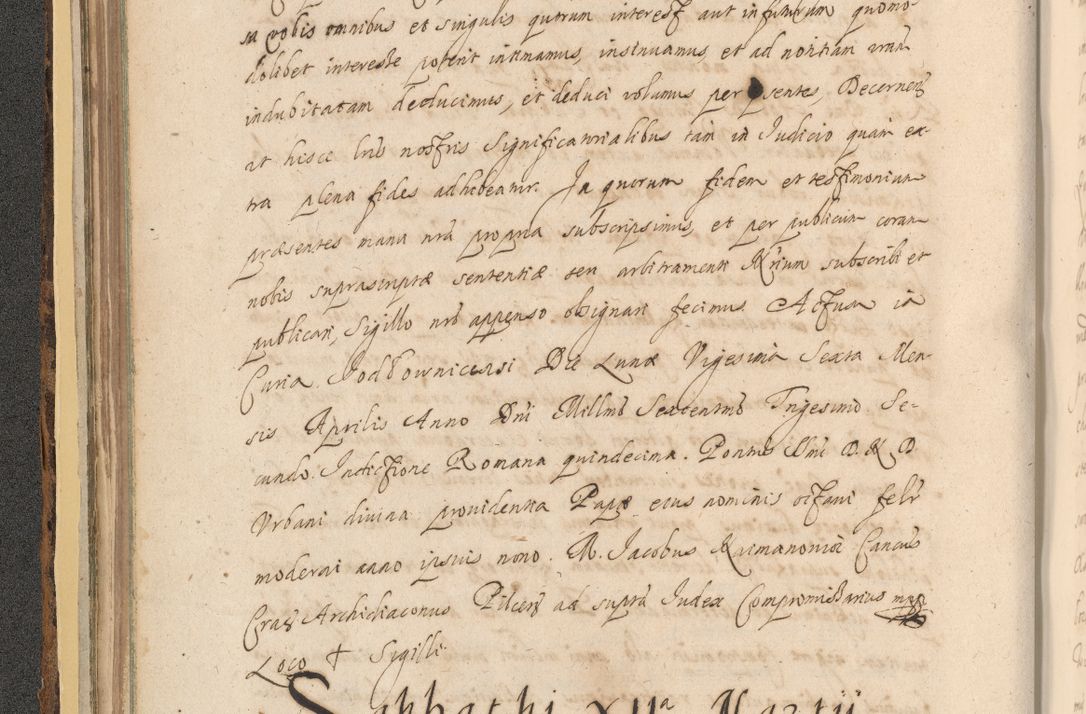 vobis omnibus et singulis quorum interest aut in futurum quomo-
dolibet interesse poterit intimamus, insinuamus, et ad notitiam vram
indubitatam deducimus, et deduci volumus per psentes, Decernens
ut hisce lris nostris Significatorialibus tam in Judicio quam ex-
tra plena fides adhibeatur. In quorum fidem et testimonium
præsentes manu nra propria subscripsimus, et per publicum coram
nobis suprascriptæ sententiæ seu arbitramenti Nrium subscribi et
publicari, Sigillo nro appenso obsignari fecimus. Actum in
Curia Die Lunæ Vigesima Sexta Men-
sis Aprilis Anno Dni Millmo Sexcentmo Trigesimo Se-
cundo Indictione Romana quindecima. Pontus Dni D. N. D
Urbani divina providentia Papæ eius nominis octavi felr
moderni anno ipsius nono. M. Jacobus Cancus
Cras Archidiaconus Pilcens ad supra Judex Compromissarius mpp
Loco † Sigilli
Sabbathi XIIa Martii